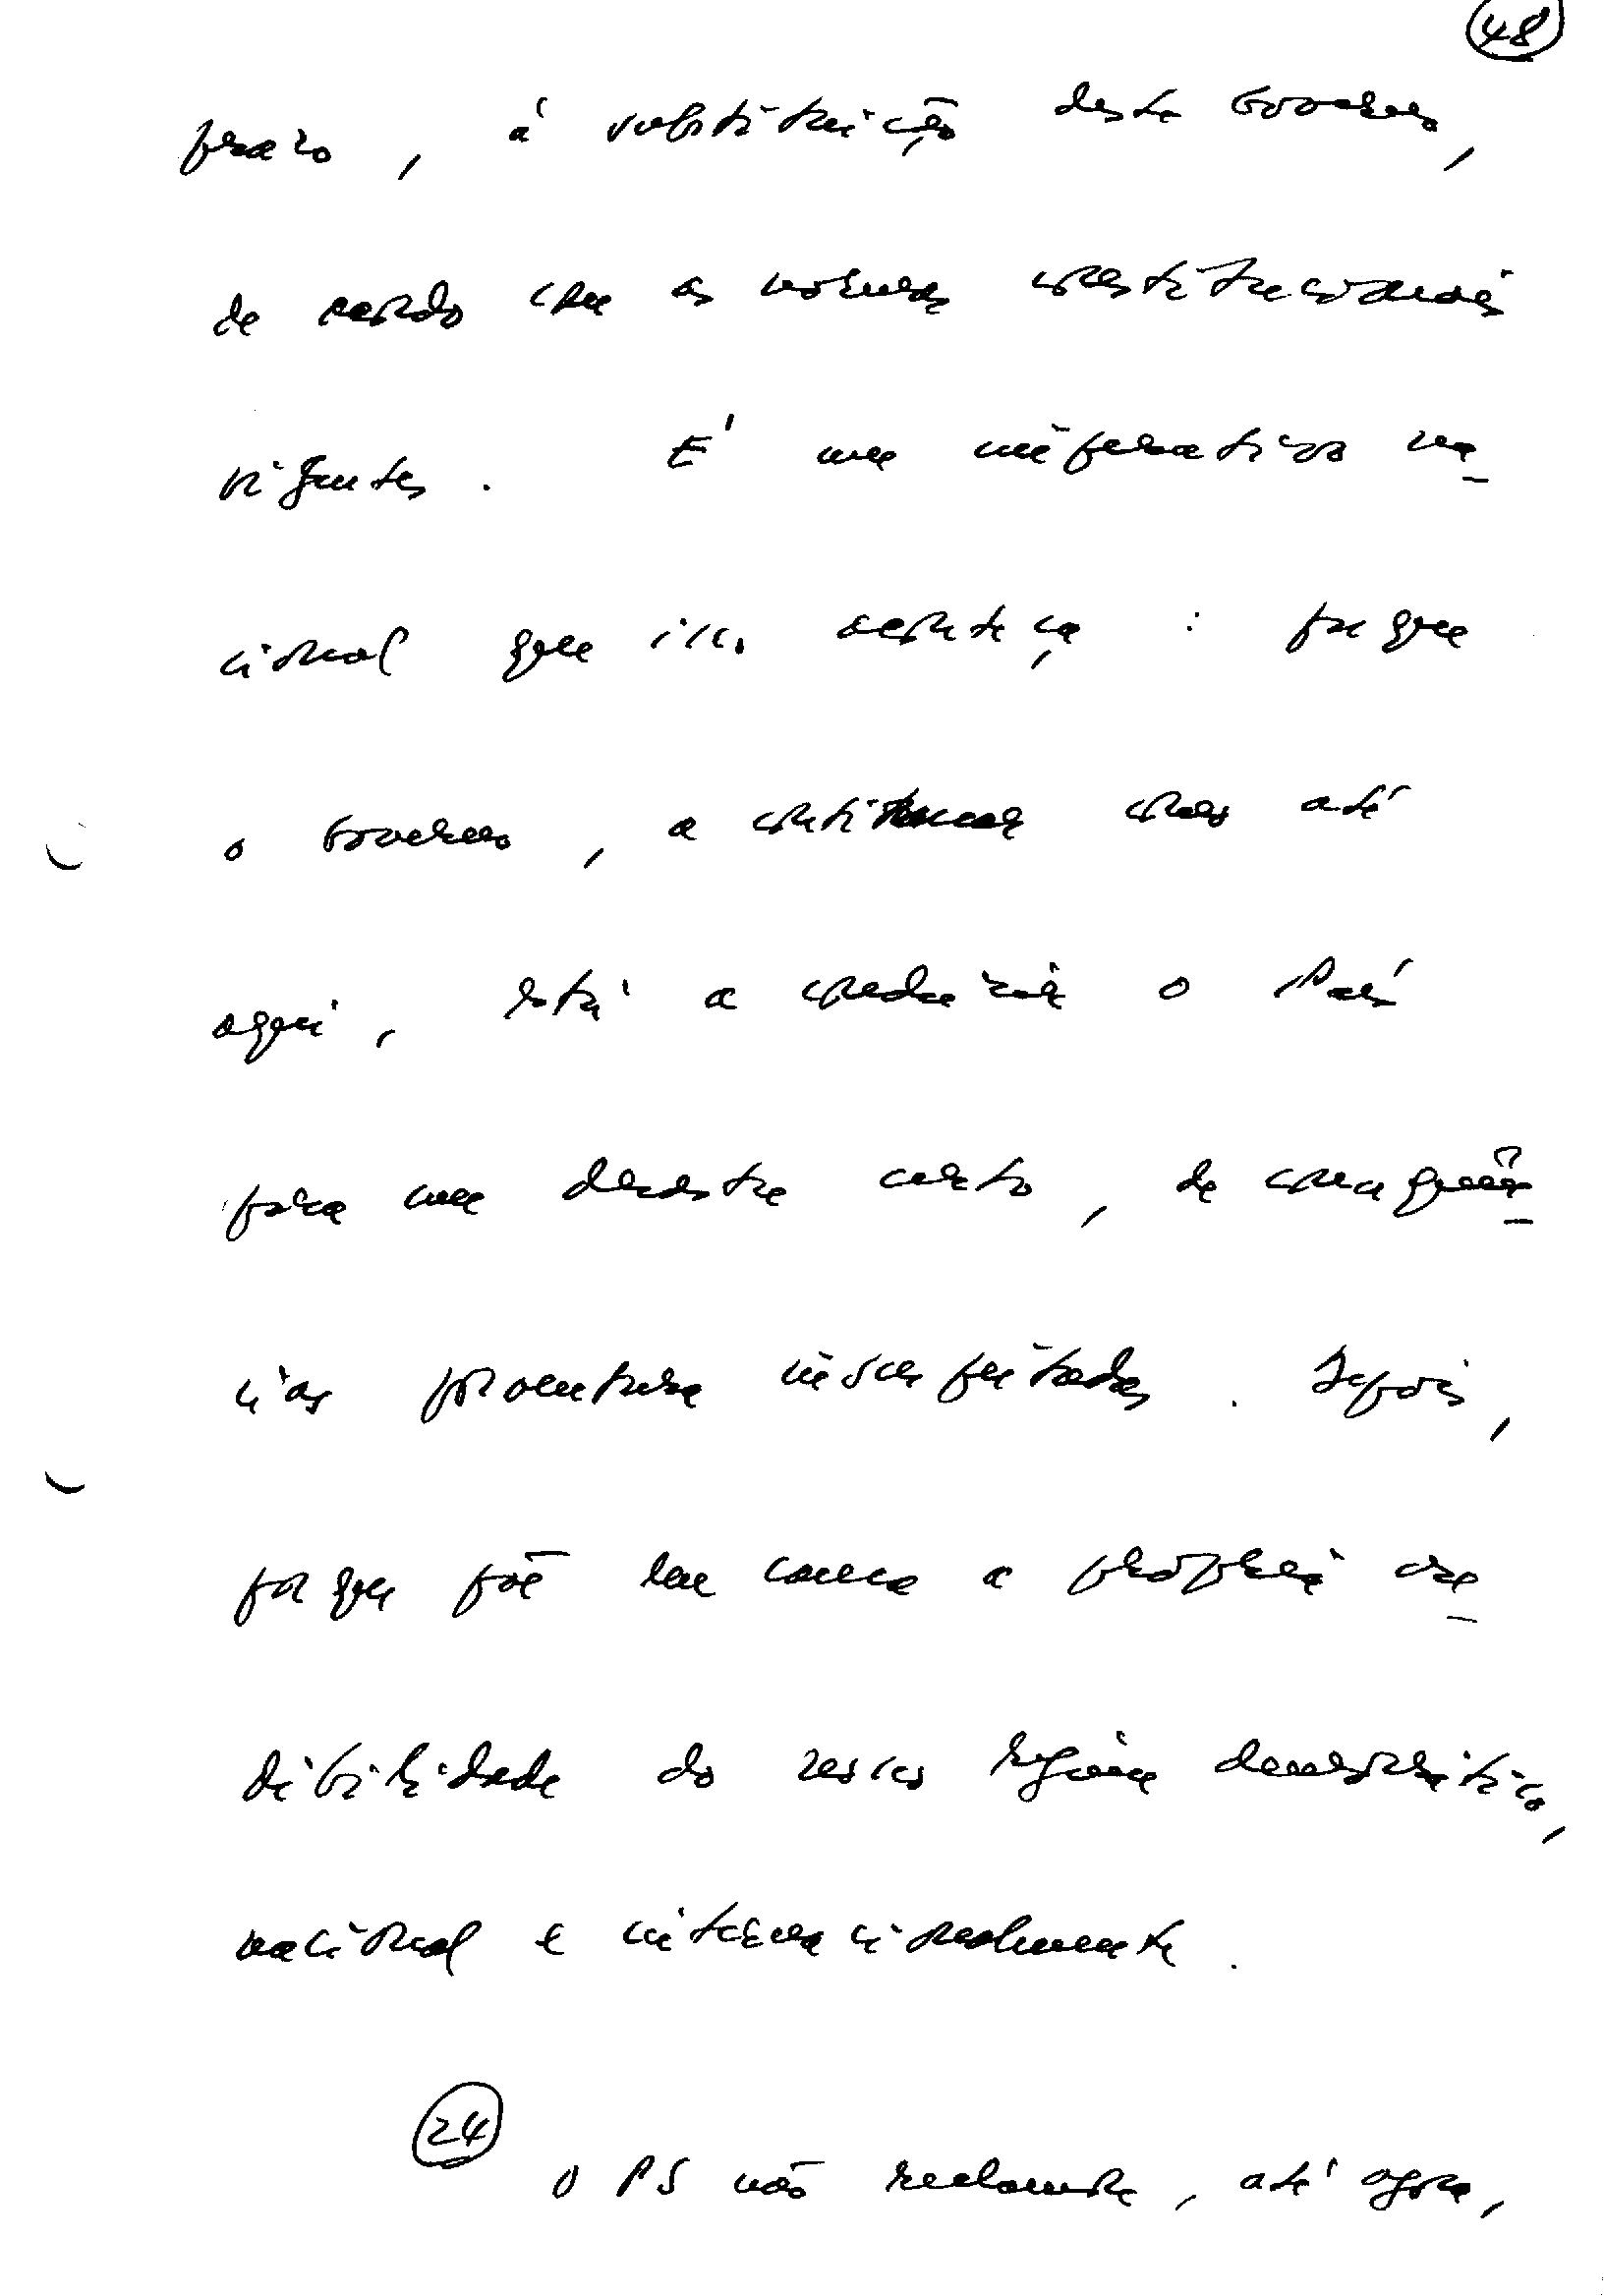 48
prazo, à substituição deste Governo,
de acordo com as normas constitucionais
vigentes. É um imperativo na
cional que isso aconteça: porque
o Governo, a continuar como até
aqui, está a conduzir o País
para um desastre certo, de consequên
cias porventura insuspeitadas. Depois,
porque põe em causa a própria cre
dibilidade do nosso regime democrático,
nacional e internacionalmente.
24
O PS não reclamou, até agora,